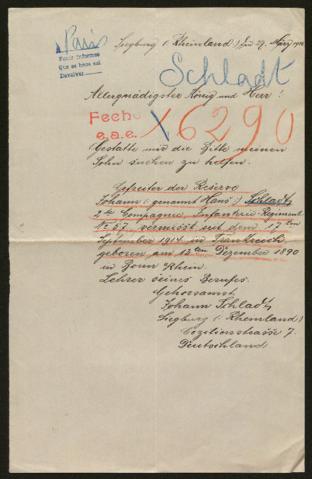 Paris
Pedir Informes
Que se haga así
Devolver
Siegburg (Rheinland) den 29. März
Schladt
Allergnädigster König und Herr!
Fecho
e.a.e. X6290
Gestatte mir die Bitte meinen
Sohn suchen zu helfen.
Gefreiter der Reserve
Johann (genannt Hans) Schladt
2te Compagnie, Infanterie Regiment
No 67. vermisst seit dem 17ten
September 1914 in Frankreich
geboren am 12ten Dezember 1890
in Bonn Rhein.
Lehrer seines Berufes.
Gehorsamst
Johann Schladt
Siegburg (Rheinland)
7.
Deutschland